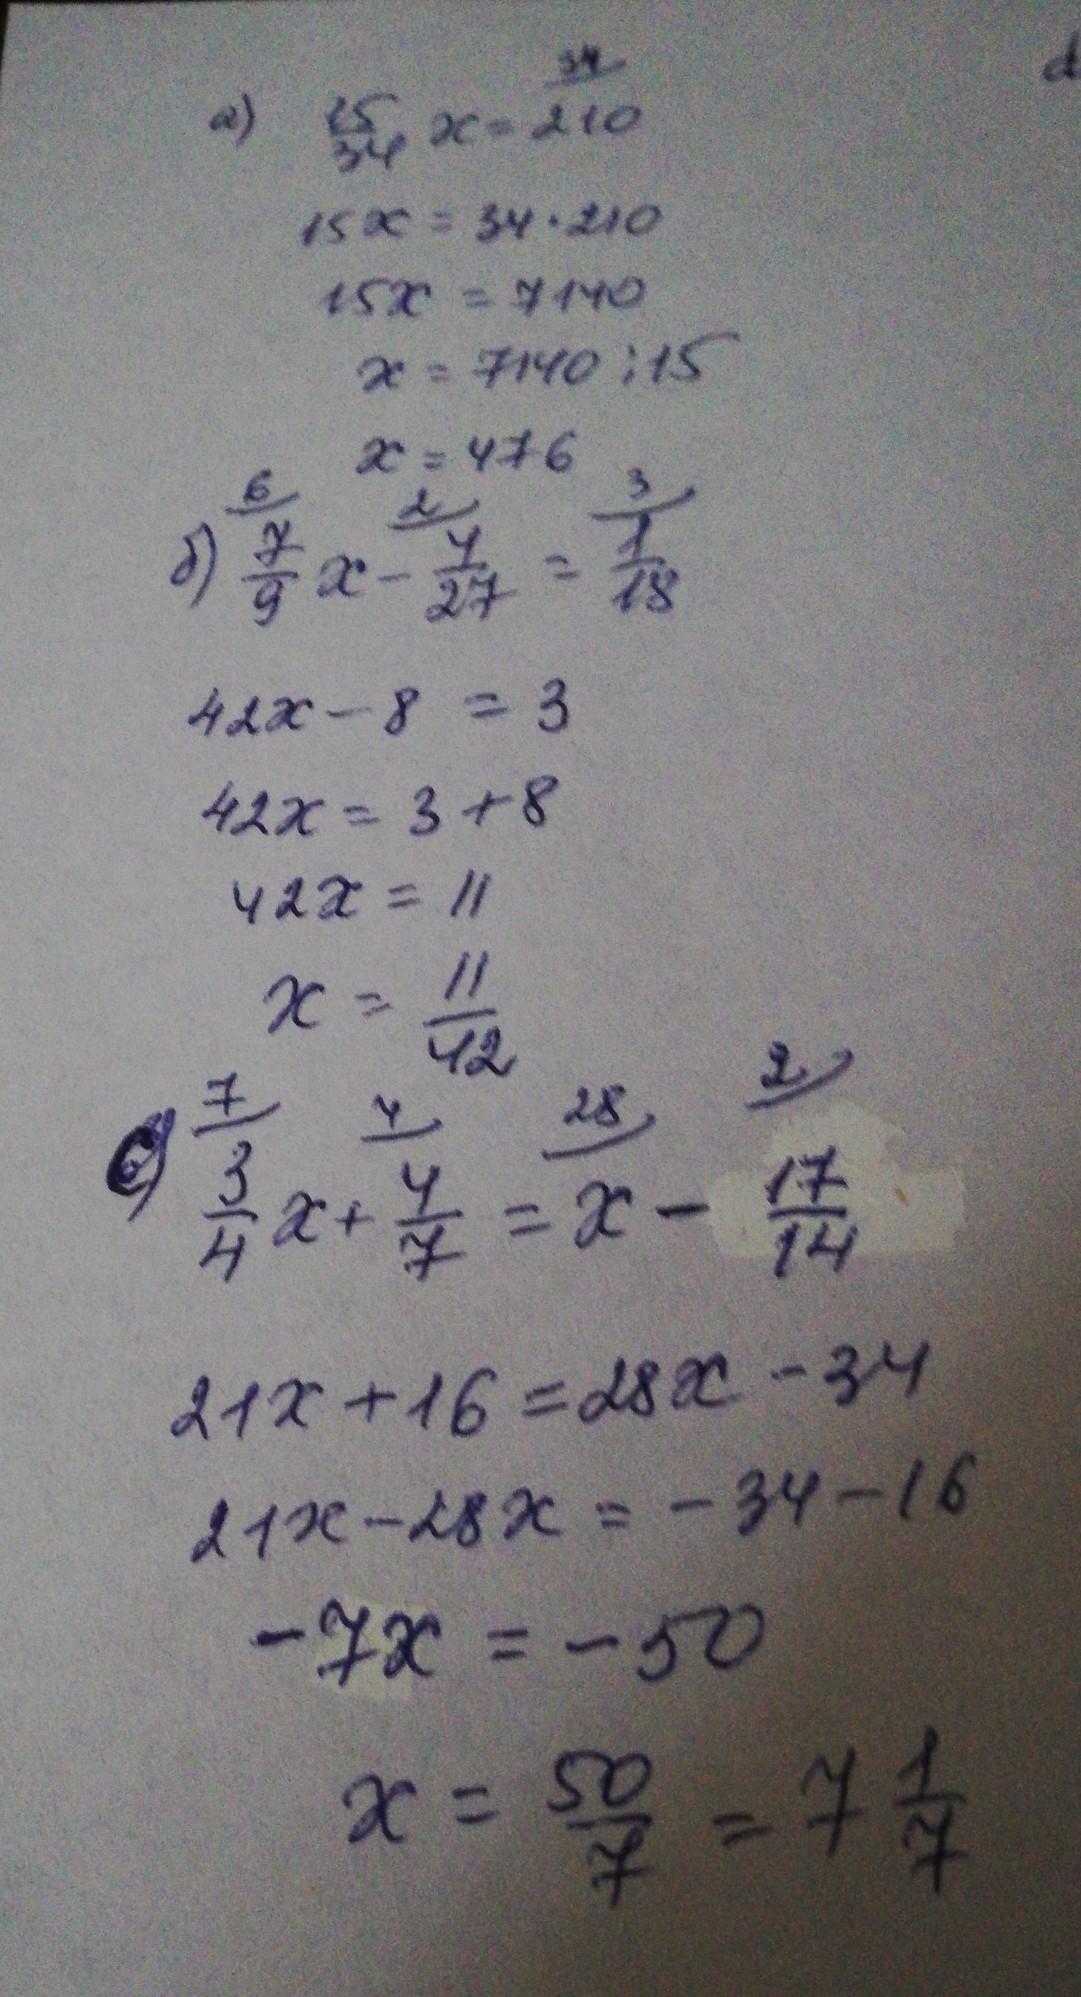 34
а) 15/34 x = 210
15x = 34·210
15x = 7140
x = 7140 : 15
x = 476
6 2 3
б) 7/9 x - 4/27 = 1/18
42x - 8 = 3
42x = 3 + 8
42x = 11
x = 11/42
7 4 28 2
c) 3/4 x + 4/7 = x - 17/14
21x + 16 = 28x - 34
21x - 28x = -34 - 16
-7x = -50
x = 50/7 = 7 1/7